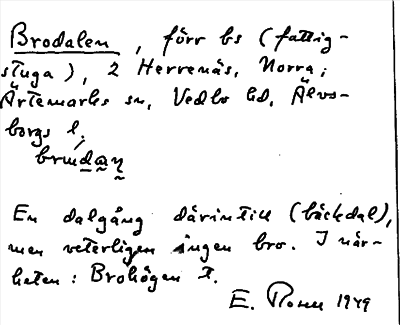 Brodalen, förr bs (fattig-
stuga), 2 Herrenäs, Norra;
Ärtemarks sn, Vedbo hd, Älvs-
borgs l.
En dalgång därintill (bäckdal),
men veterligen ingen bro. I när-
heten: Brohögen T.
E. 1949